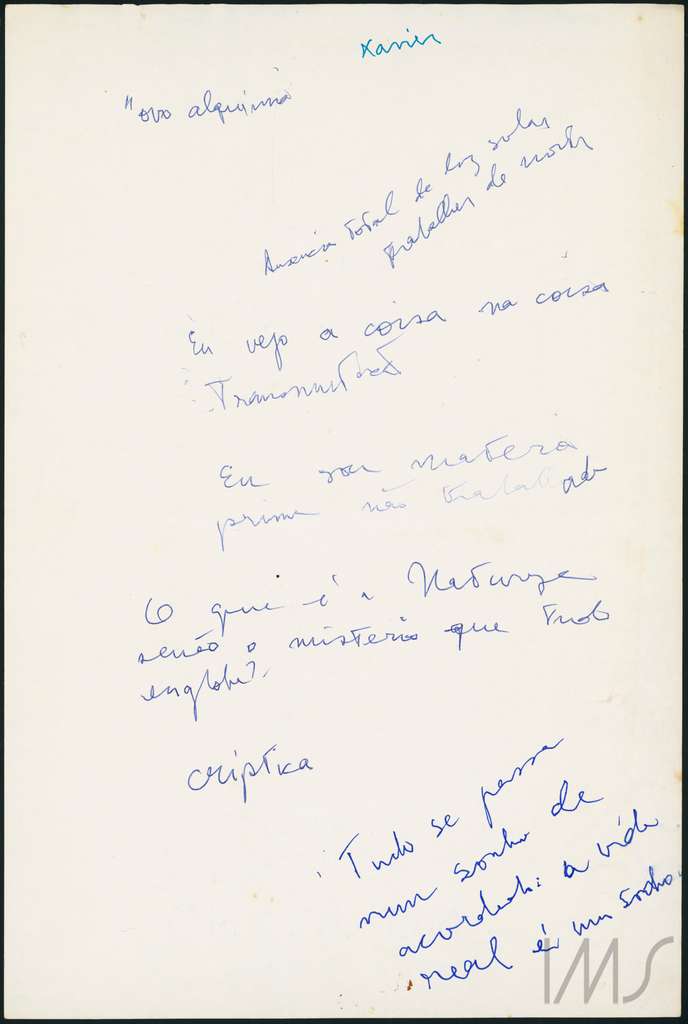 Xavier
"ovo alquimia
Ausência total de luz solar
trabalhar de noite
Eu vejo a coisa na coisa
Transmutad
Eu sou matéria
prima não trabalhada
O que é a Natureza
senão o misterio que tudo
engloba?
criptica
Tudo se passa
num sonho de
acordado: a vida
real é um sonho.
IMS